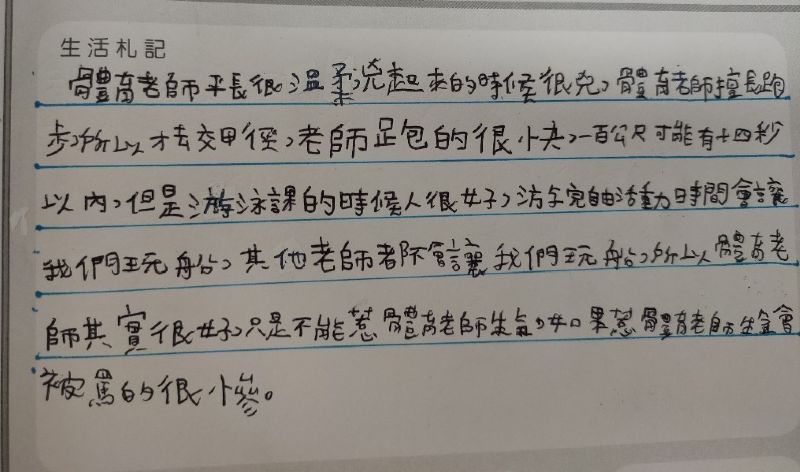 生活札記
體育老師平長很溫柔,兇起來的時候很兇,體育老師擅長跑
步,所以才去交田徑,老師足包的很快,一百公尺可能有十四秒
以內,但是游泳課的時候人很好,游完自由活動時間會讓
我們玩船,其他老師都不會讓我們玩船,所以體育老
師其實很好,只是不能惹體育老師生氣,如果惹體育老師生氣會
被罵的很慘。